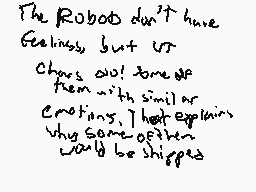 The Robob don't have
feelings, but UT
chars do! Some of
them with similar
emotions. That explains
why some of them
would be shipped